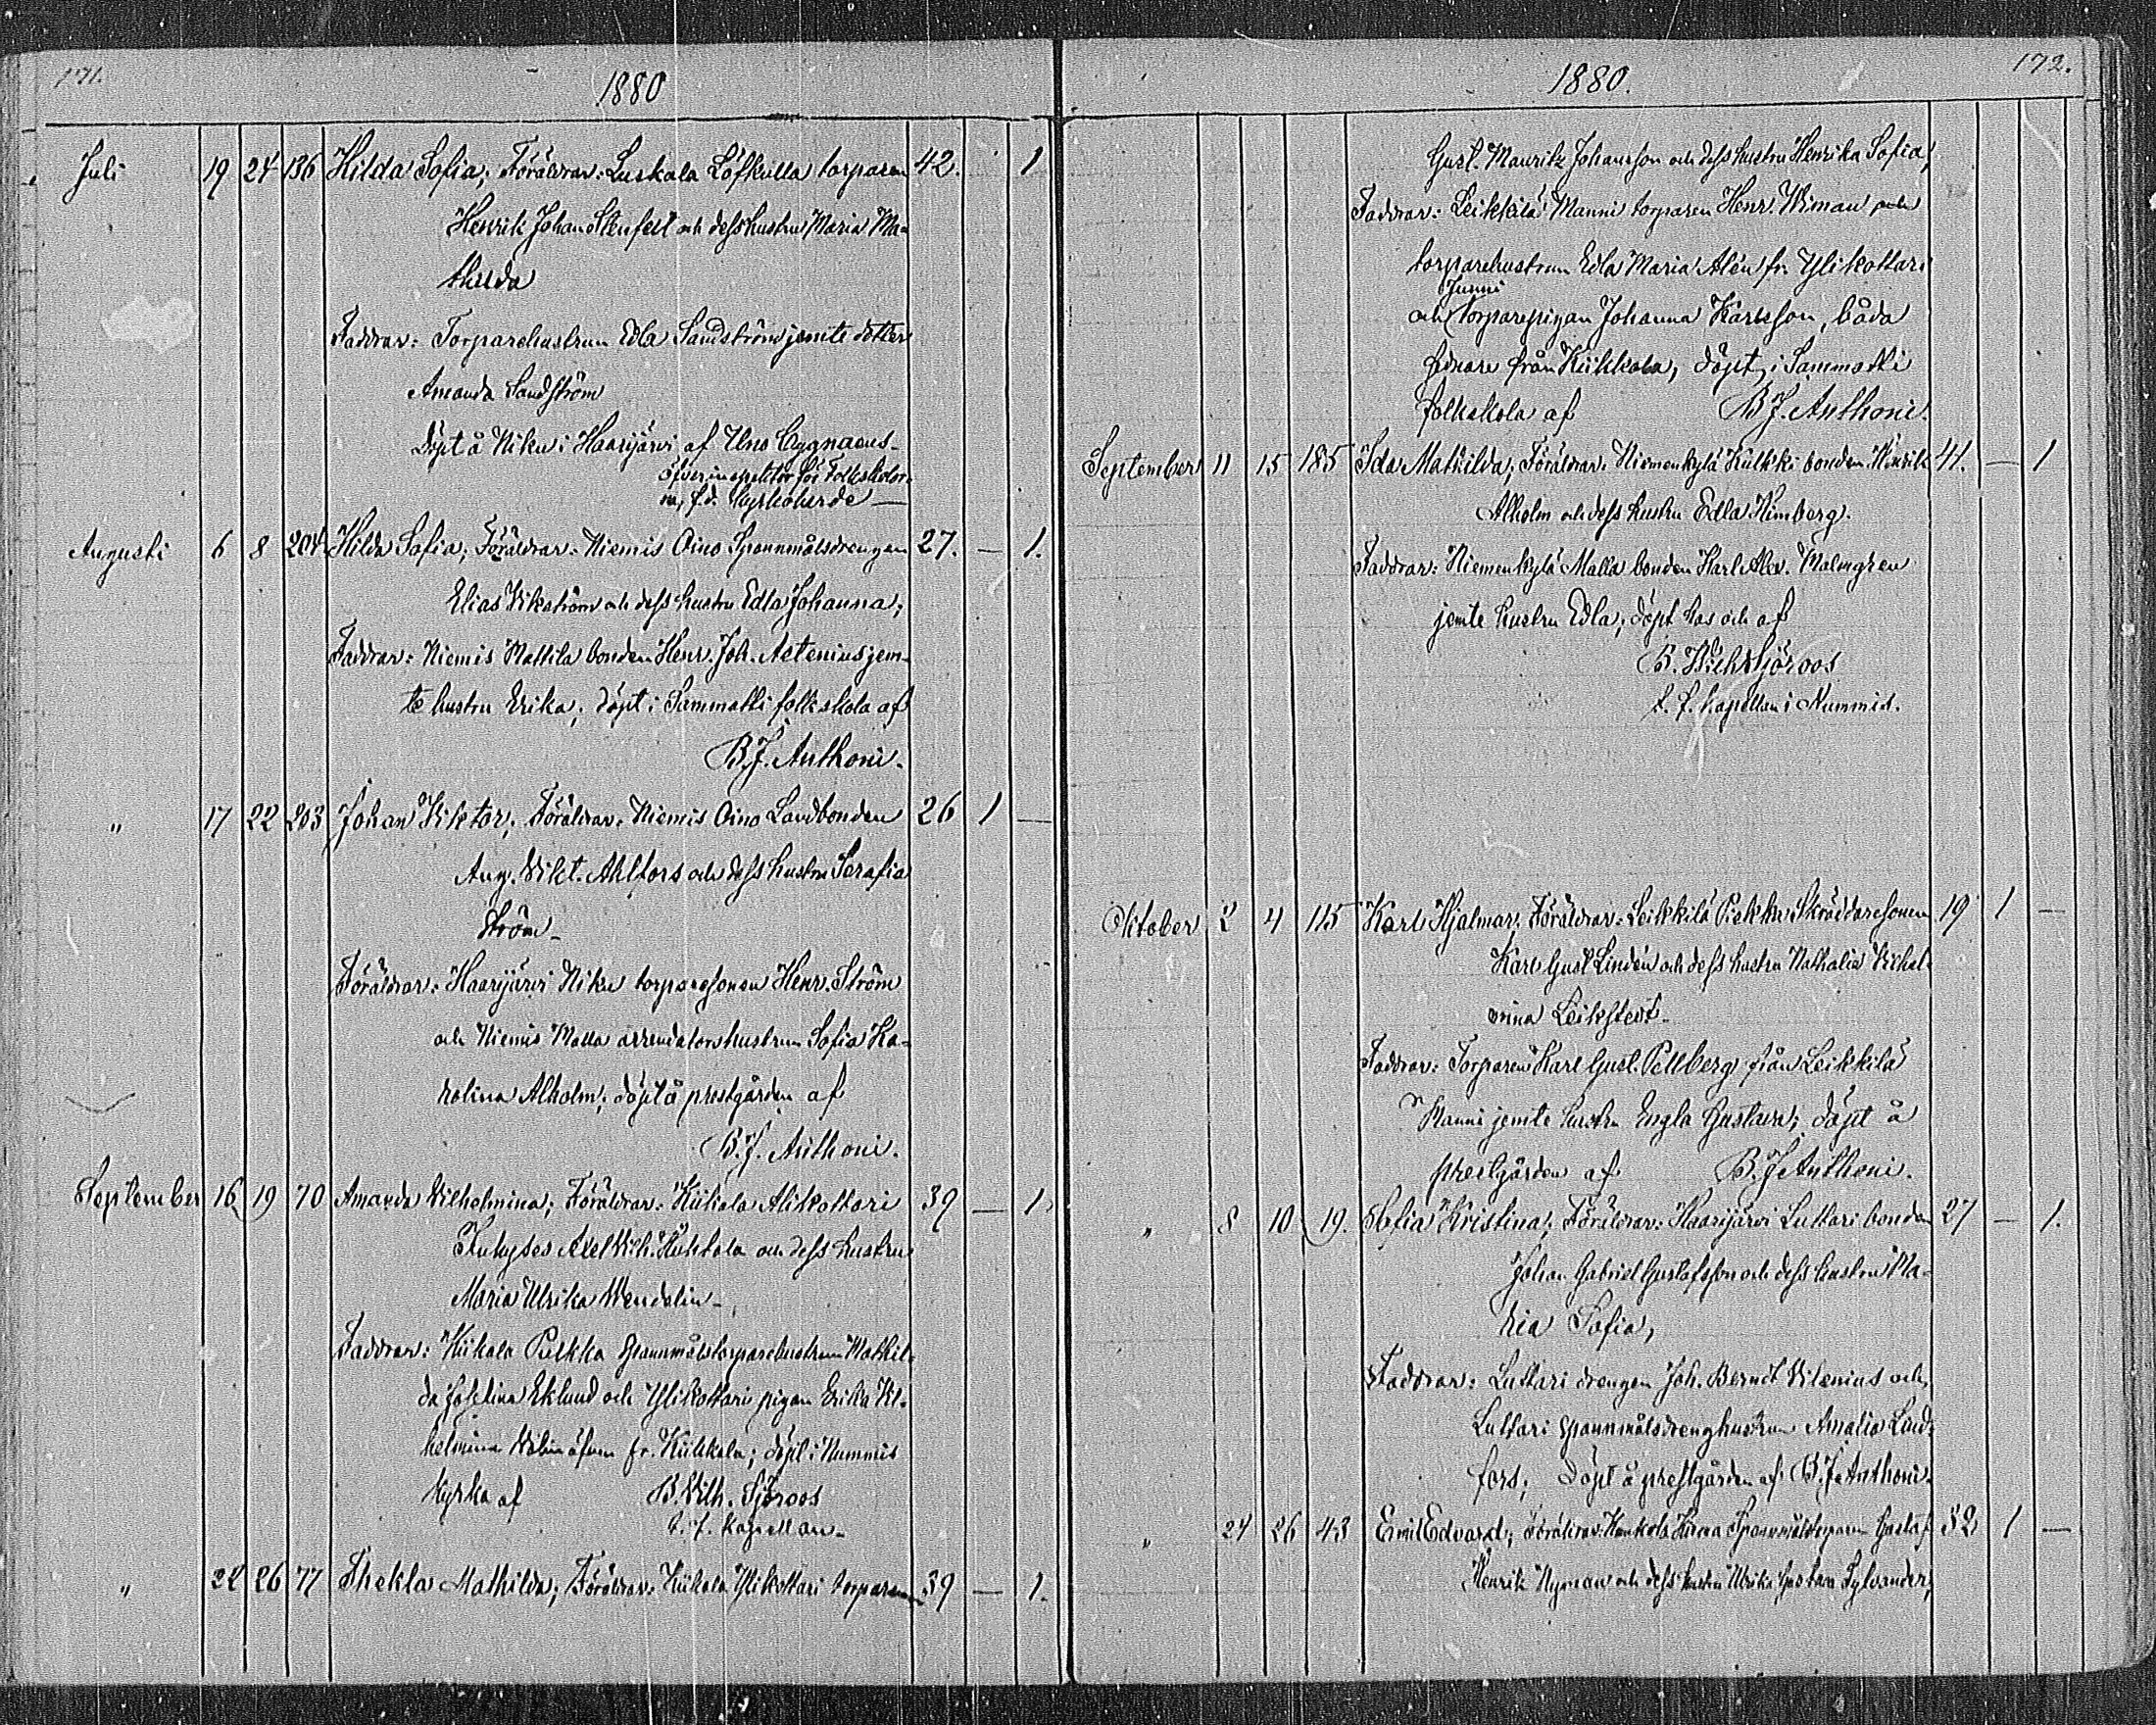 171.
1880
Juli 19 24 136 Hilda Sofia; Föräldrar: Luskala Löfkulla torparen 42. 1
Henrik Johan Stenfelt och dess hustru Maria Ma-
thilda
Faddrar: Torparehustrun Edla Sandström jemte dotter
Amanda Sandström
döpt å Niku i Haarijärvi af Uno Cygnaeus-
öfverinspektör för Folkskolor-
na, f.d. Kyrkoherde —
Augusti 6 8 204 Hilda Sofia; Föräldrar: Niemis Oino Spannmålsdrengen 27. — 1.
Elias Vikström och dess hustru Edla Johanna;
Faddrar: Niemis Mattila bonden Henr. Joh. Aetenius jem-
te hustru Erika; döpt i Sammatti folkskola af
B.J. Anthoni.
" 17 22 203 Johan Viktor; Föräldrar: Niemis Oino Landbonden 26 1 —
Aug. Vikt. Ahlfors och dess hustru Serafia
Ström-
Föräldrar: Haarijärvi Niku torparesonen Henr. Ström
och Niemis Malla arrendatorshustrun Sofia Ka-
rolina Alholm; döpt å prestgården af
B.J. Anthoni.
September 16 19 70 Amanda Vilhelmina; Föräldrar: Kiikala Alikottari 39 — 1.
Axel Vilh. och dess hustru
Maria Ulrika Wendelin-
Faddrar: Kiikala Pukkka Spannmålstorparehustrun Mathil-
da Josefina Eklund och Ylikottari pigan Erika Vil-
helmina fr. Kiikkala; döpt i Nummis
Kyrka af B. Vilh. Sjöroos
t.f. Kapellan-
" 22 26 77 Thekla Mathilda; Föräldrar: Kiikala Ylikottari torparen 39 — 1.
172.
1880.
Gust. Mauritz Johansson och dess hustru Henrika Sofia;
Faddrar: Leikkilä Manni torparen Henr. Wiman och
torparehustrun Edla Maria Alén fr. Ylikottari
Junni
och torparepigan Johanna Karlsson, båda
sednare från Kiikkala, döpt i Sammatti
folkskola af B.J. Anthoni.
September 11 15 185 Ida Mathilda; Föräldrar: Niemenkylä Kulkki bonden Henrik 41. — 1
Alholm och dess hustru Edla Kimberg.
Faddrar: Niemenkylä Malla bonden Karl Alex. Malmgren
jemte hustru Edla; döpt hos och af
B. Vilh. Sjöroos
t.f. Kapellan i Nummis.
Oktober 2 4 115 Karl Hjalmar; Föräldrar: Leikkilä Piekka Skräddaresonen 19 1 —
Karl Gust. Lindén och dess hustru Nathalia Vilhel-
mina Leikstedt-
Faddrar: Torparen Karl Gust. Pellberg från Leikkilä
Manni jemte hustru Engla Gustava; döpt å
prestgården af B.J. Anthoni.
" 8 10 19. Sofia Kristina; Föräldrar: Haarijärvi Luttari bonden 27 — 1.
Johan Gabriel Gustafsson och dess hustru Ma-
ria Sofia,
Faddrar: Luttari drengen Joh. Berndt Vilenius och
Luttari spannmålsdrenghustrun Amalia Lind-
fors; döpt å prestgården af B.J. Anthoni.
" 24 26 43 Emil Edvard; Föräldrar: Kaukola Spannmålstorparen Gustaf 32 1 —
Henrik Nyman och dess hustru Ulrika Gustava Sylvander,